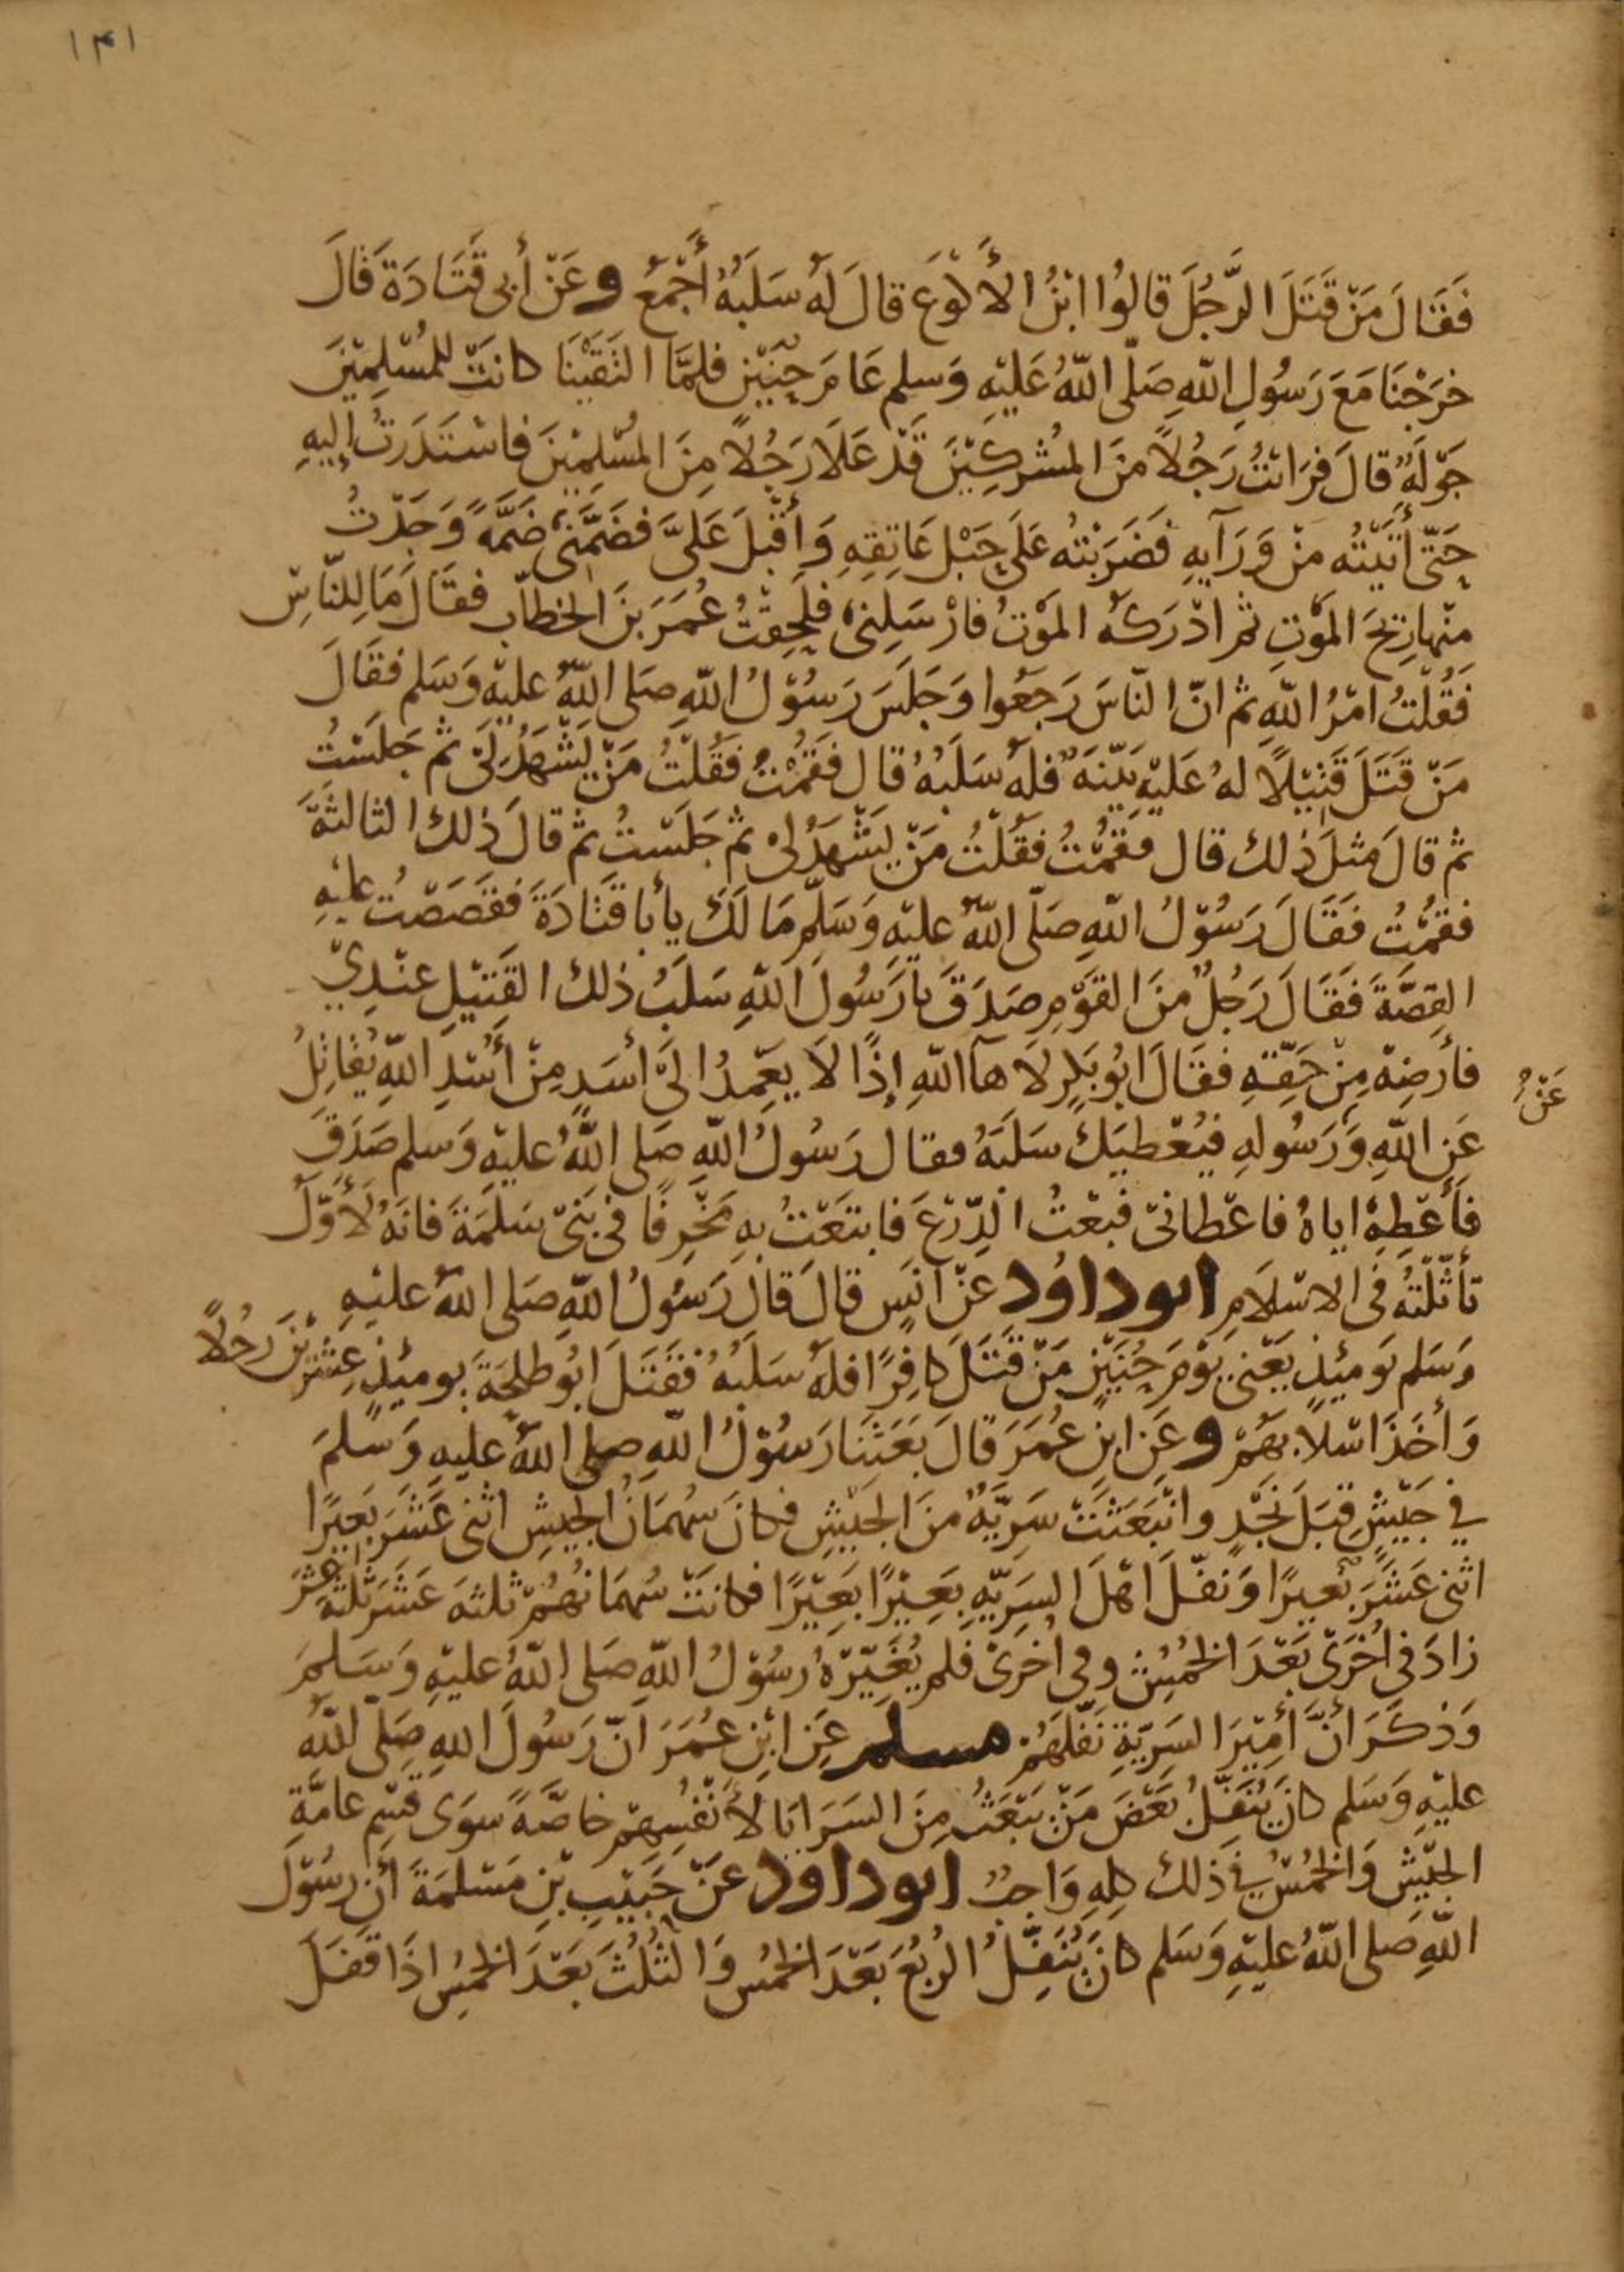 ١٣١
فَقَالَ مَنْ قَتَلَ الرَّجُلَ قَالُوا ابْنُ الأَكْوَعِ قَالَ لَهُ سَلَبُهُ أَجْمَعُ وعَنْ أَبِي قَتَادَةَ قَالَ
خَرَجْنَا مَعَ رَسُولِ اللّٰهِ صَلّى اللّٰهُ عَلَيْهِ وَسلم عَامَ حُنَيْنٍ فلمَّا الْتَقَيْنَا كانَتْ لِلمُسْلِمِيْنَ
جَوْلَةٌ قالَ فَرَأَيْتُ رَجُلاً مِنَ المُشْرِكِيْنَ قَدْ عَلَا رَجُلاً مِنَ المُسْلِمِيْنَ فاسْتَدَرْتُ إِلَيهِ
حَتّى أَتَيْتُه مِنْ وَرَآيِهِ فَضَرَبْتُه عَلَى حَبْلِ عَاتِقِهِ وَأَقْبَلَ عَلَيَّ فضَمَّنِي ضَمَّةً وَجَدْتُ
مِنْهَا رِيحَ المَوْتِ ثم ادْرَكَهُ المَوْتُ فارْسَلَنِي فلَحِقْتُ عُمَرَ بنَ الخطاب فقَالَ مَا لِلنّاسِ
فَقُلْتُ امْرُ اللّٰهِ ثم انّ النّاسَ رَجَعُوا وَجَلَسَ رَسُوْلُ اللّٰهِ صَلى اللّٰهُ عليْهِ وَسَلم فقَالَ
مَنْ قَتَلَ قَتِيْلاً لهُ عَلَيْهِ بَيّنَةٌ فلهُ سَلَبُهُ قال فَقُمْتُ فَقُلْتُ مَنْ يَشْهَدُ لِيْ ثم جَلَسْتُ
ثم قالَ مثلَ ذلك قال فَقُمْتُ فَقُلْتُ مَنْ يَشْهَدُ لِيْ ثم جَلَسْتُ ثم قالَ ذلك الثالثَةَ
فقُمْتُ فَقَالَ رَسُوْلُ اللّٰهِ صَلّى اللّٰهُ عليْهِ وَسَلّم مَا لَكَ يا أبا قَتَادَةَ فقَصَصْتُ عليْهِ
القِصَّةَ فَقَالَ رَجُلٌ منَ القَوْمِ صَدَقَ يا رَسُولَ اللّٰهِ سَلَبُ ذلك القَتِيْلِ عِنْدِيْ
فأَرْضِهْ مِنْ حَقّهِ فقَالَ ابُو بَكْرٍ لَا هآ اللّٰهِ إِذًا لَا يَعْمِدُ الَى أَسَدٍ مِنْ أُسْدِ اللّٰهِ يُقَاتِلُ
عَنْ
عَنِ اللّٰهِ وَرَسُولهِ فيُعْطِيَكَ سَلَبَهُ فقال رَسُولُ اللّٰهِ صَلى اللّٰهُ عليْهِ وَسلم صَدَقَ
فَأَعْطِهِ اياهُ فاعْطانِيْ فبِعْتُ الدّرْعَ فابتَعْتُ بهِ مَخْرِفًا في بَنِيْ سَلَمَةَ فانهُ لَأَوّلُ
تَأَثّلْتُهُ في الاسْلَامِ ابوداوُد عَنْ انَسٍ قالَ قالَ رَسُولُ اللّٰهِ صَلى اللّٰهُ عليْهِ
وَسَلم يَومَئِذٍ يَعْني يَوْمَ حُنَيْنٍ مَنْ قَتَلَ كافِرًا فلهُ سَلَبُهُ فقَتَلَ ابُو طلحَةَ يومئذٍ عِشْرِيْنَ رَجُلاً
وَأَخَذَ اسْلَابَهُمْ وعَنِ ابنِ عُمَرَ قالَ بَعَثَنَا رَسُوْلُ اللّٰهِ صلى اللّٰهُ عليهِ وَسلمَ
في جَيْشٍ قِبَلَ نَجْدٍ وانْبَعَثَتْ سَرِيّةٌ منَ الجَيْشِ فكانَ سُهْمَانُ الجَيشِ اثنى عَشَرَ بَعِيرًا
اثنى عَشَرَ بَعيرًا وَنفّلَ اهْلَ السّرِيّةِ بَعِيْرًا بَعِيْرًا فكانَتْ سُهْمَانُهُمْ ثلثةَ عَشَرَ ثلثةَ عَشَرَ
زادَ في اُخْرَى بَعْدَ الخُمُسِ وفي اُخْرَى فلم يُغَيِّرْهُ رسُوْلُ اللّٰهِ صَلى اللّٰهُ عليْهِ وَسَلمَ
وَذكَرَ أَنَّ أَمِيْرَ السَرِيّةِ نَفّلَهُمْ مسلم عَنِ ابْنِ عُمَرَ انّ رَسُولَ اللهِ صَلّى اللّٰهُ
عليْهِ وَسَلم كانَ يُنَفِّلُ بَعْضَ مَنْ يَبْعَثُ مِنَ السَرَايَا لأَنْفُسِهِمْ خاصَّةً سوَى قَسْمِ عامَّةِ
الجَيْشِ وَالخُمْسُ في ذلك كلهِ وَاجبٌ ابوداود عَنْ حَبِيْبِ بْنِ مَسْلمَةَ أَن رسُوْلَ
اللّٰهِ صَلى اللّٰهُ عليْهِ وَسَلم كانَ يُنَفّلُ الرُبُعَ بَعْدَ الخُمُسِ وَالثُلُثَ بَعْدَ الخُمُسِ اذَا قفَلَ